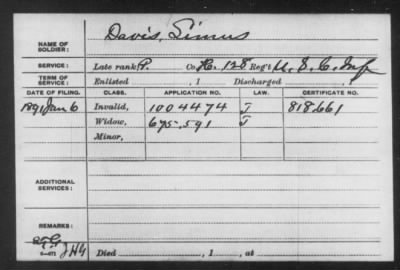 Davis, Simus
NAME OF SOLDIER:
SERVICE: Late rank P. Co. H, 128 Reg't U. S. C. Inf
TERM OF SERVICE: Enlisted , 1 Discharged , 1
DATE OF FILING. CLASS. APPLICATION NO. LAW. CERTIFICATE NO.
1891 Jan 6 Invalid, 1004474 J 818.661
Widow, 695,591 J
Minor,
ADDITIONAL SERVICES:
REMARKS:
6-471 Died , 1 , at